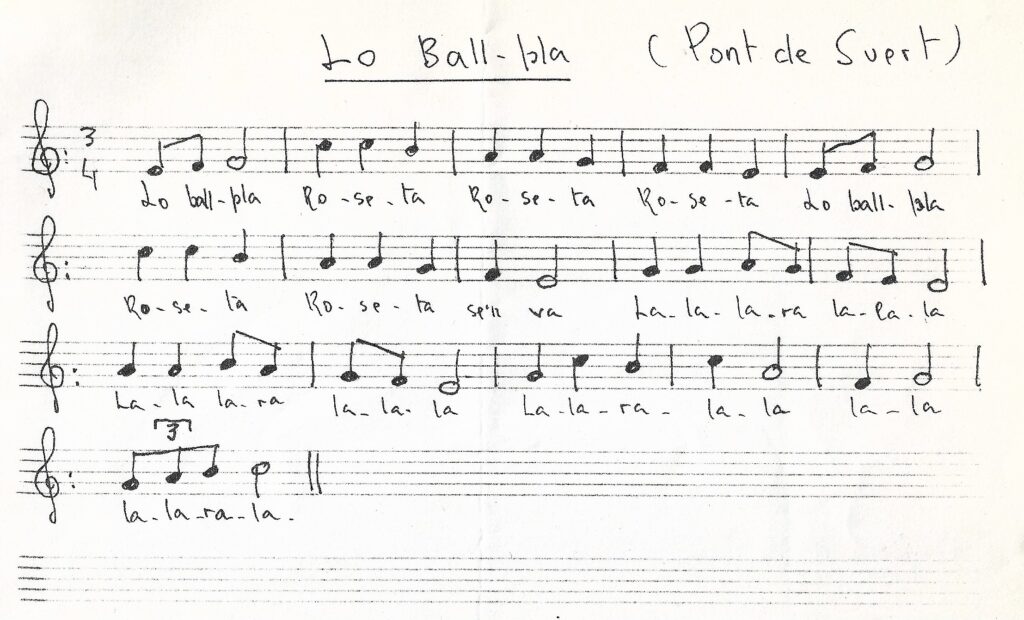 Lo Ball-pla (Pont de Suert)
3
4
Lo ball-pla Ro-se-ta Ro-se-ta Ro-se-ta Lo ball-pla
Ro-se-ta Ro-se-ta se'n va La-la-la-ra la-la-la
La-la la-ra la-la-la La-la-ra- la-la la-la
3
la-la-ra-la.